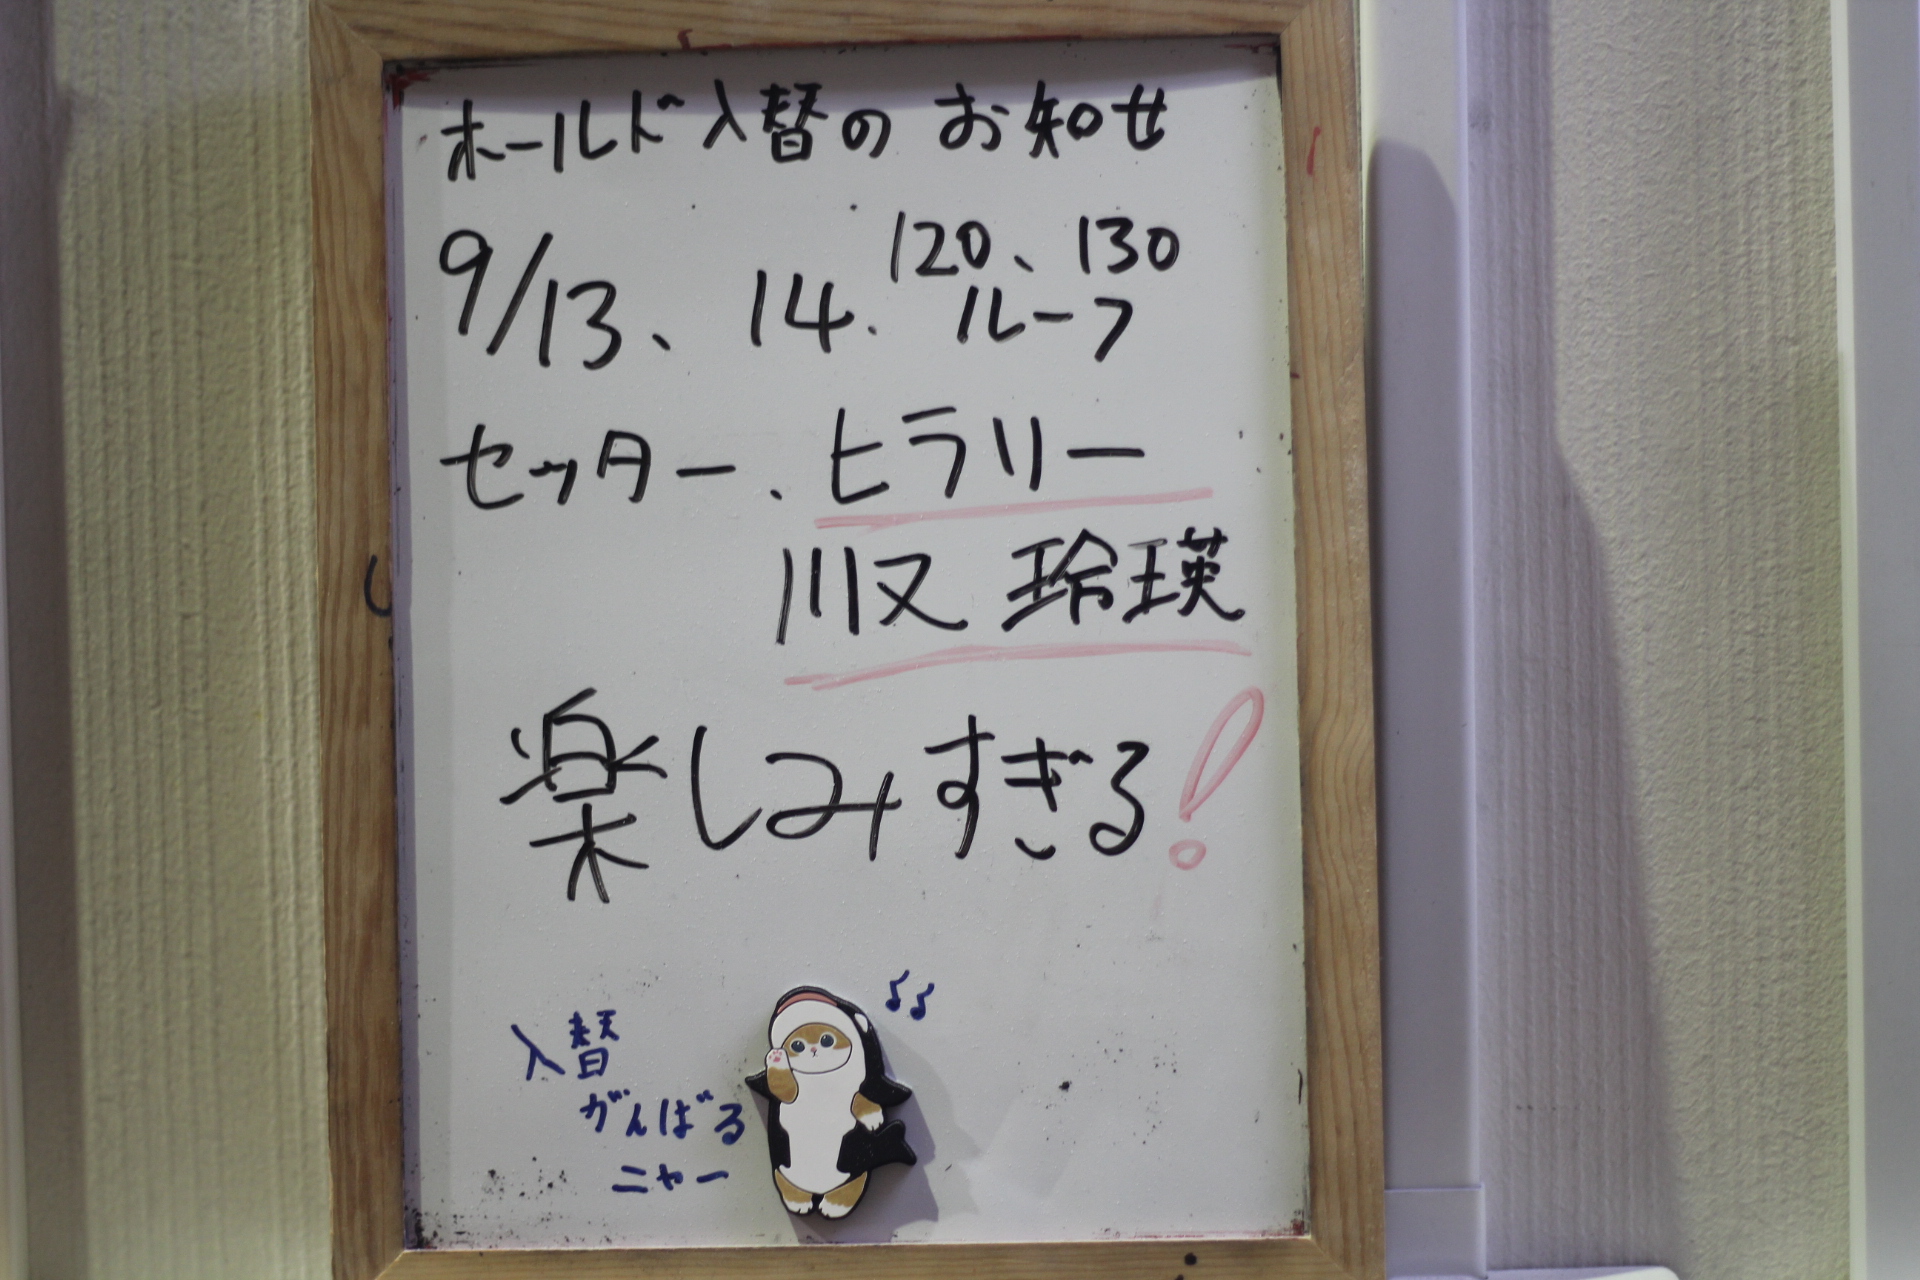 ホールド入替のお知せ
120、130
9/13、14. ルーフ
セッター、ヒラリー
川又 玲瑛
楽しみすぎる!
♪♪
入替
がんばる
ニャー